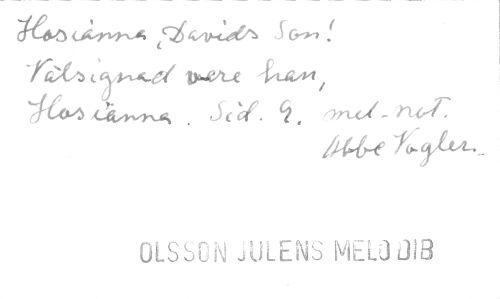 Hosianna, Davids Son!
Välsignad vare han,
Hosianna. Sid. 9. mel-not.
Abbé Vogler.
OLSSON JULENS MELODIB